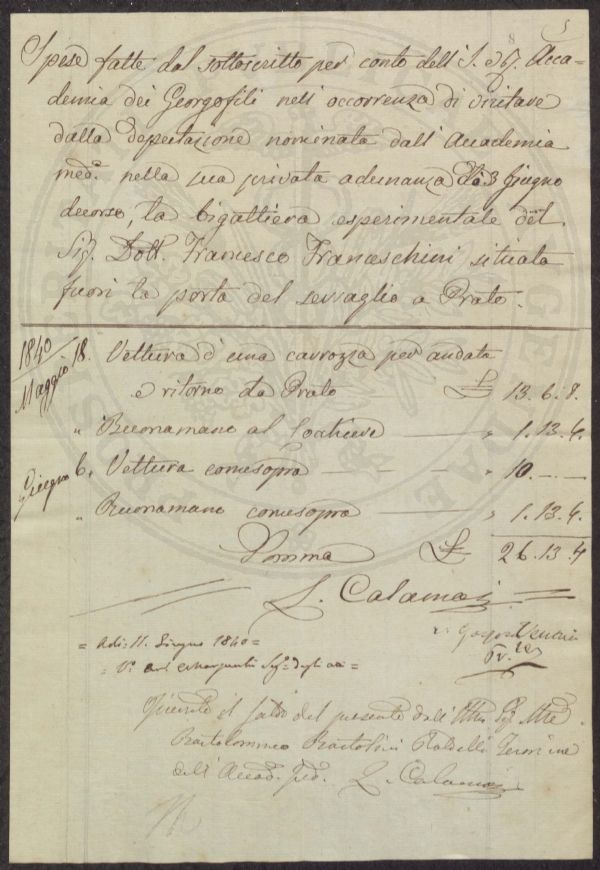 8 5
Spese fatte dal sottoscritto per conto dell' I. e R. Acca-
demia dei Georgofili nell' occorrenza di visitare
dalla deputazione nominata dall' Accademia
med.ª nella sua privata adunanza de' 3 Giugno
decorso, la bigattiera esperimentale del
Sig. Dott. Francesco Franceschini situata
fuori la porta del serraglio a Prato.
1840
Maggio 18. Vettura d'una carrozza per andata
e ritorno da Prato £ 13. 6. 8.
" Buonamano al " 1. 13. 4.
Giugno 6. Vettura comesopra " 10. - . -
" Buonamano comesopra " 1. 13. 4.
Somma £ 26. 13. 4
L. Calamai
= Adi: 11. Giugno 1840 =
= V.º degli =
Ricevuto il saldo del presente dall' Sig.
Bartolommeo Bartolini Baldelli
dell' Accad. L. Calamai